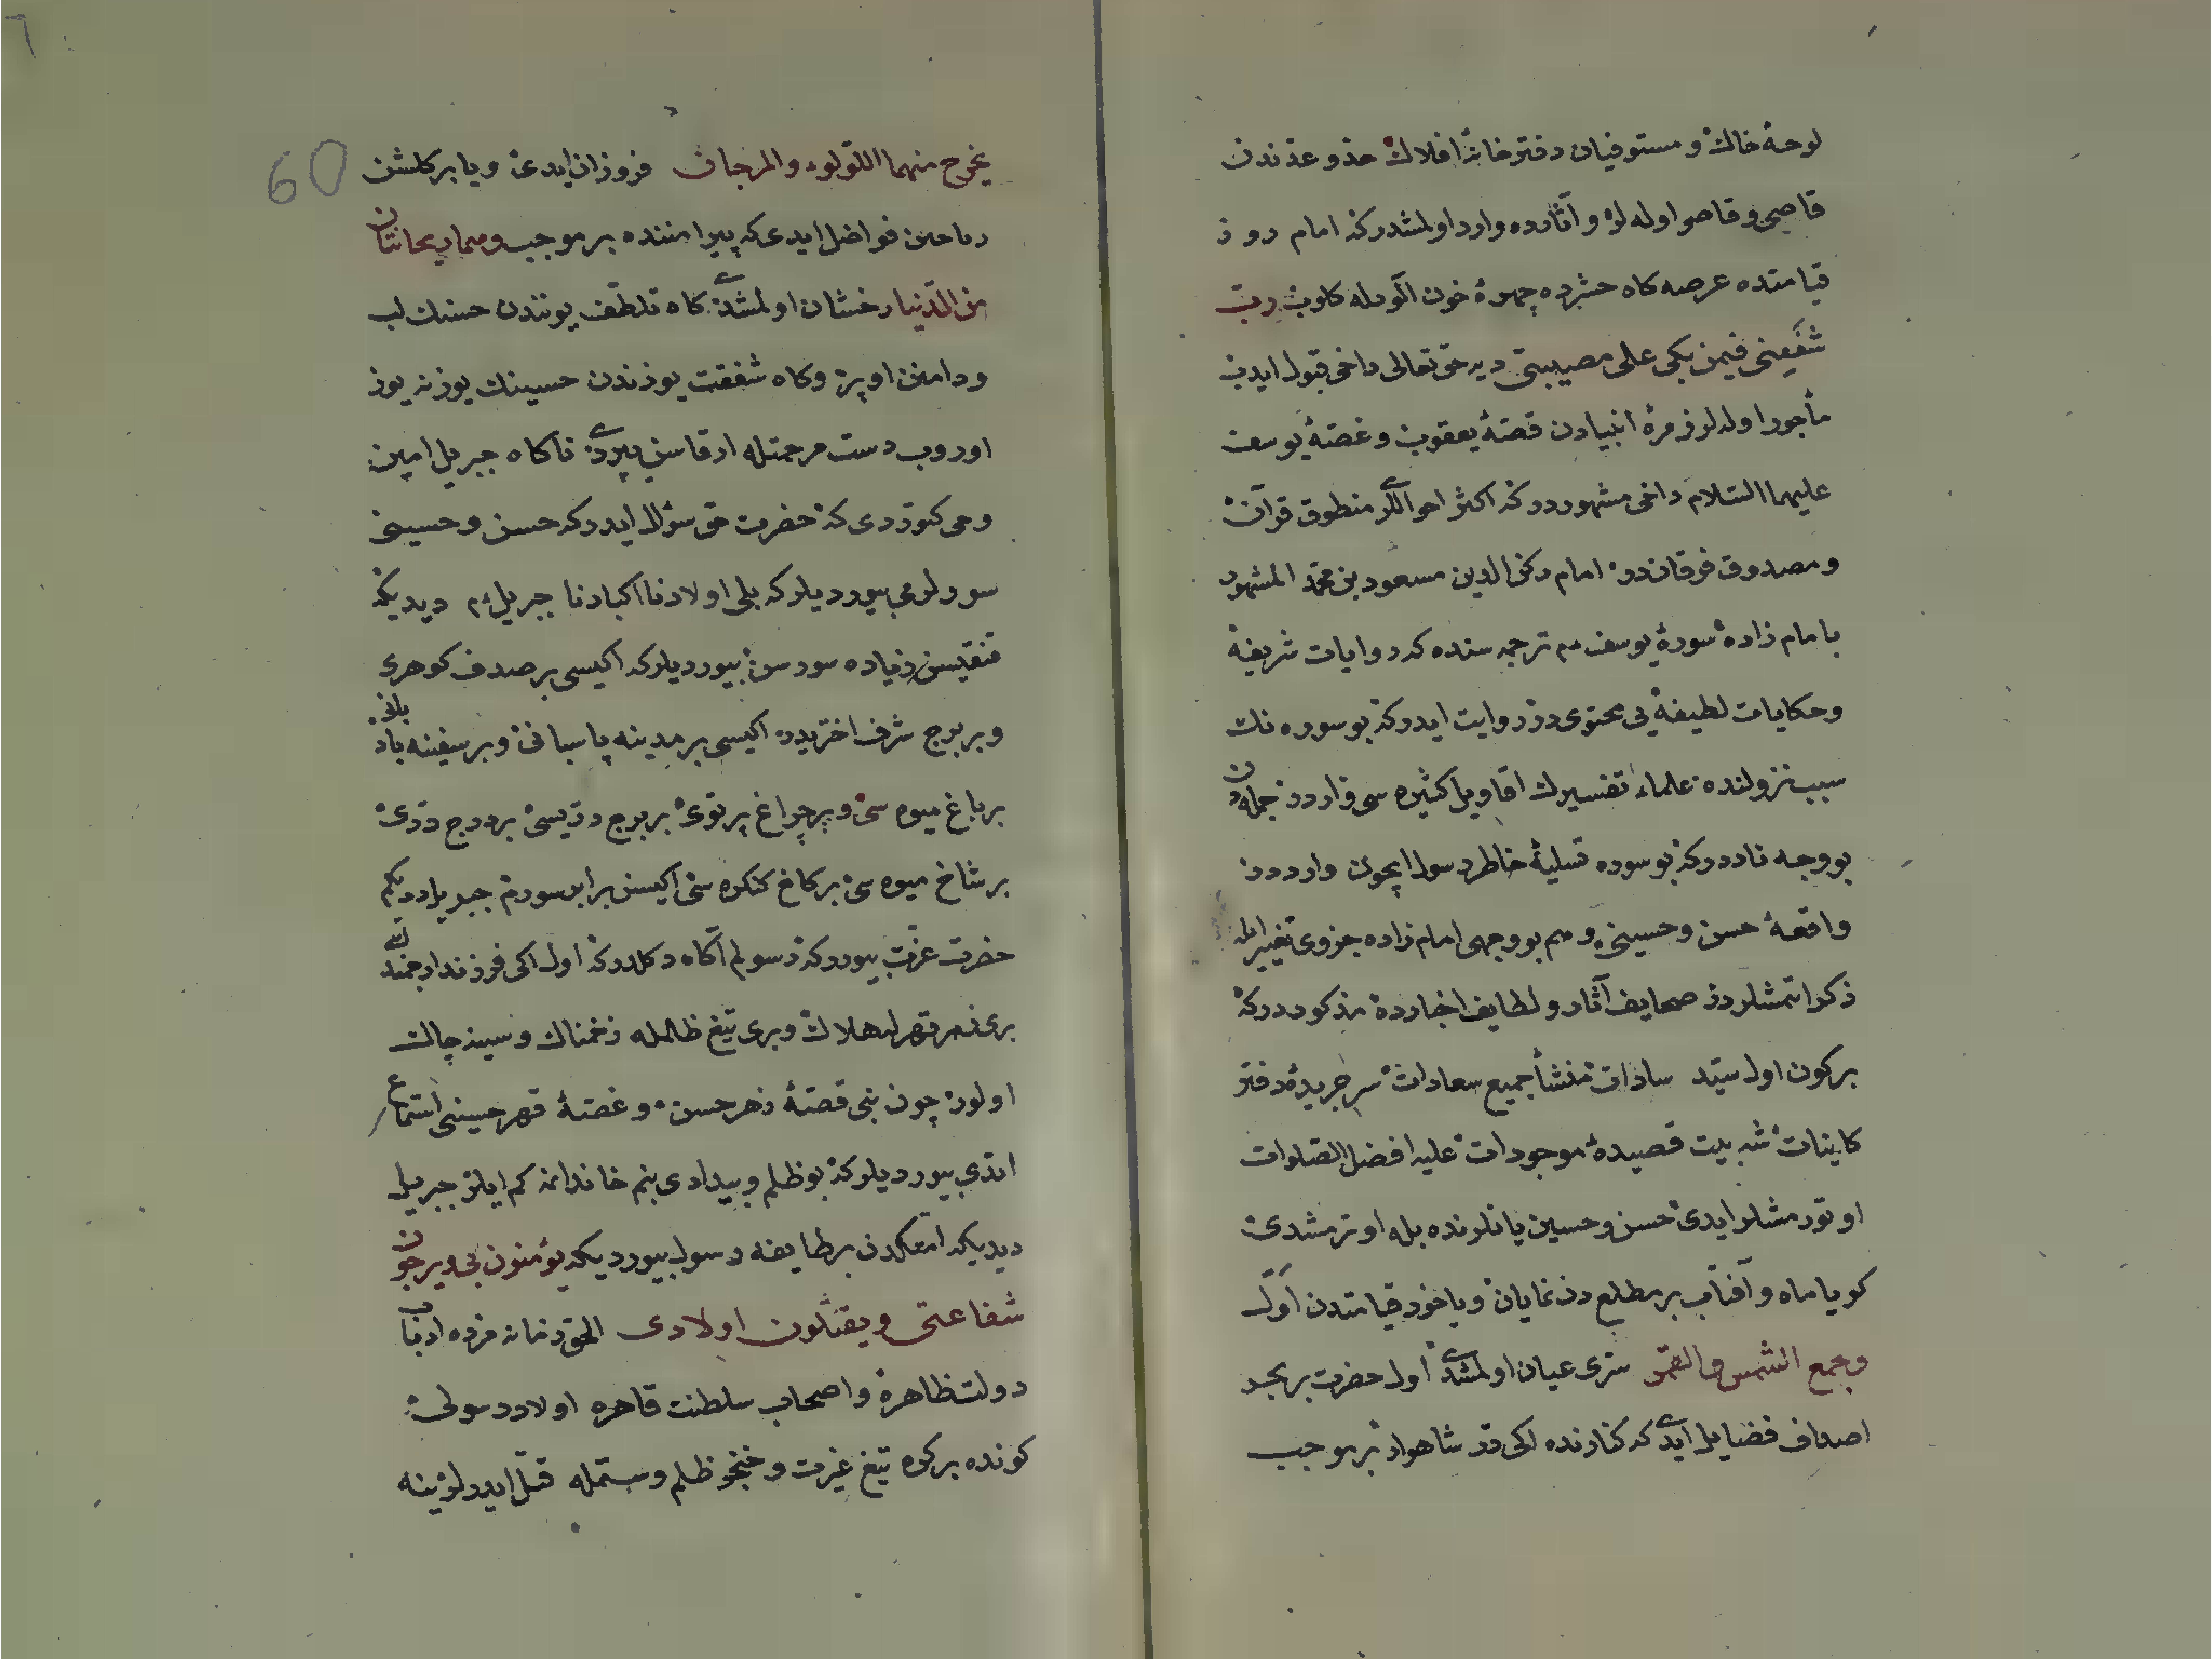 لوحهٔ خاك و مستوفیان دفترخانهٔ افلاك حدو عددندن
قاصی و قاصر اوله لر و آثارده وارد اولمشدركه امام روز
قیامتده عرصه كاه حشرده چهرهٔ خون آلودله كلوب رب
شفعنی فیمن بكی علی مصیبتی دیه حق تعالی داخی قبول ایدوب
مأجور اولدلر زمرهٔ انبیادن قصهٔ یعقوب و غصهٔ یوسف
علیهما السلام داخی مشهوردركه اكثر احواللری منطوق قرآن
و مصدوق فرقاندر امام ركن الدین مسعود بن محمد المشهور
بامام زاده سورهٔ یوسف م ترجمه سنده كه روایات شریفه
و حكایات لطیفه یی محتوی در روایت ایدركه بو سوره نك
سبب نزولنده علماء تفسیرك اقاویل كثیره سی واردر جمله دن
بو وجه نادردركه بو سوره تسلیهٔ خاطر رسول ایچون وارددر
واقعهٔ حسن و حسینی و هم بو وجهی امام زاده جزوی تغییر ایله
ذكر اتمشلردر صحایف آثار و لطایف اخبارده مذكوردركه
بركون اول سید سادات منشأ جمیع سعادات سر جریدهٔ دفتر
كاینات شه بیت قصیدهٔ موجودات علیه افضل الصلوات
اوتورمشلر ایدی حسن و حسین یانلرنده بله اوترمشدی
كویا ماه و آفتاب بر مطلع دن نمایان و یاخود قیامتدن اول
و جمع الشمس والقمر سری عیان اولمشدی اول حضرت بر بحر
اصداف فضایل ایدی كه كنارنده اكی در شاهوار بر موجب
یخرج منهما اللؤلوء والمرجان فروزان ایدی و یا بر كلشن
ریاحین فواضل ایدی كه پیرامننده بر موجب و هما ریحانتان
من الدنیا رخشان اولمشدی كاه تلطف یوزندن حسنك لب
و دامنن اوپر و كاه شفقت یوزندن حسینك یوزنه یوز
اوروب دست مرحمتله ارقاسن پیردی ناكاه جبریل امین
وحی كتوردی كه حضرت حق سؤال ایدركه حسن و حسینی
سورلرمی بیوردیلركه بلی اولادنا اكبادنا جبریل م دیدیكه
قنقیسن زیاده سورسن بیوردیلركه اكیسی بر صدف كوهری
و بر برج شرف اختریدر اكیسی بر مدینه پاسبانی و بر سفینه بادبانی
بر باغ میوه سی و بر چراغ پرتوی بر برج دریسی بر درج دری
بر شاخ میوه سی بر كاخ كنكره سی اكیسن برابر سورم جبریل دیدیكم
حضرت عزت بیوردركه رسولم آكاه دكلدركه اول اكی فرزند ارجمندك
بری زهر قهرله هلاك و بری تیغ ظلمله زخمناك و سینه چاك
اولور چون نبی قصهٔ زهر حسن و غصهٔ قهر حسینی استماع
اتدی بیوردیلركه بو ظلم و بیدادی بنم خاندانمه كم ایلر جبریل
دیدیكه امتكدن بر طایفه رسول بیوردیكه یؤمنون بی و یرجون
شفاعتی و یقتلون اولادی الحق زمانه مزده ارباب
دولت ظاهره و اصحاب سلطنت قاهره اولاد رسولی
كونده بركره تیغ غیرت و خنجر ظلم و ستمله قتل ایدرلر ینه
60